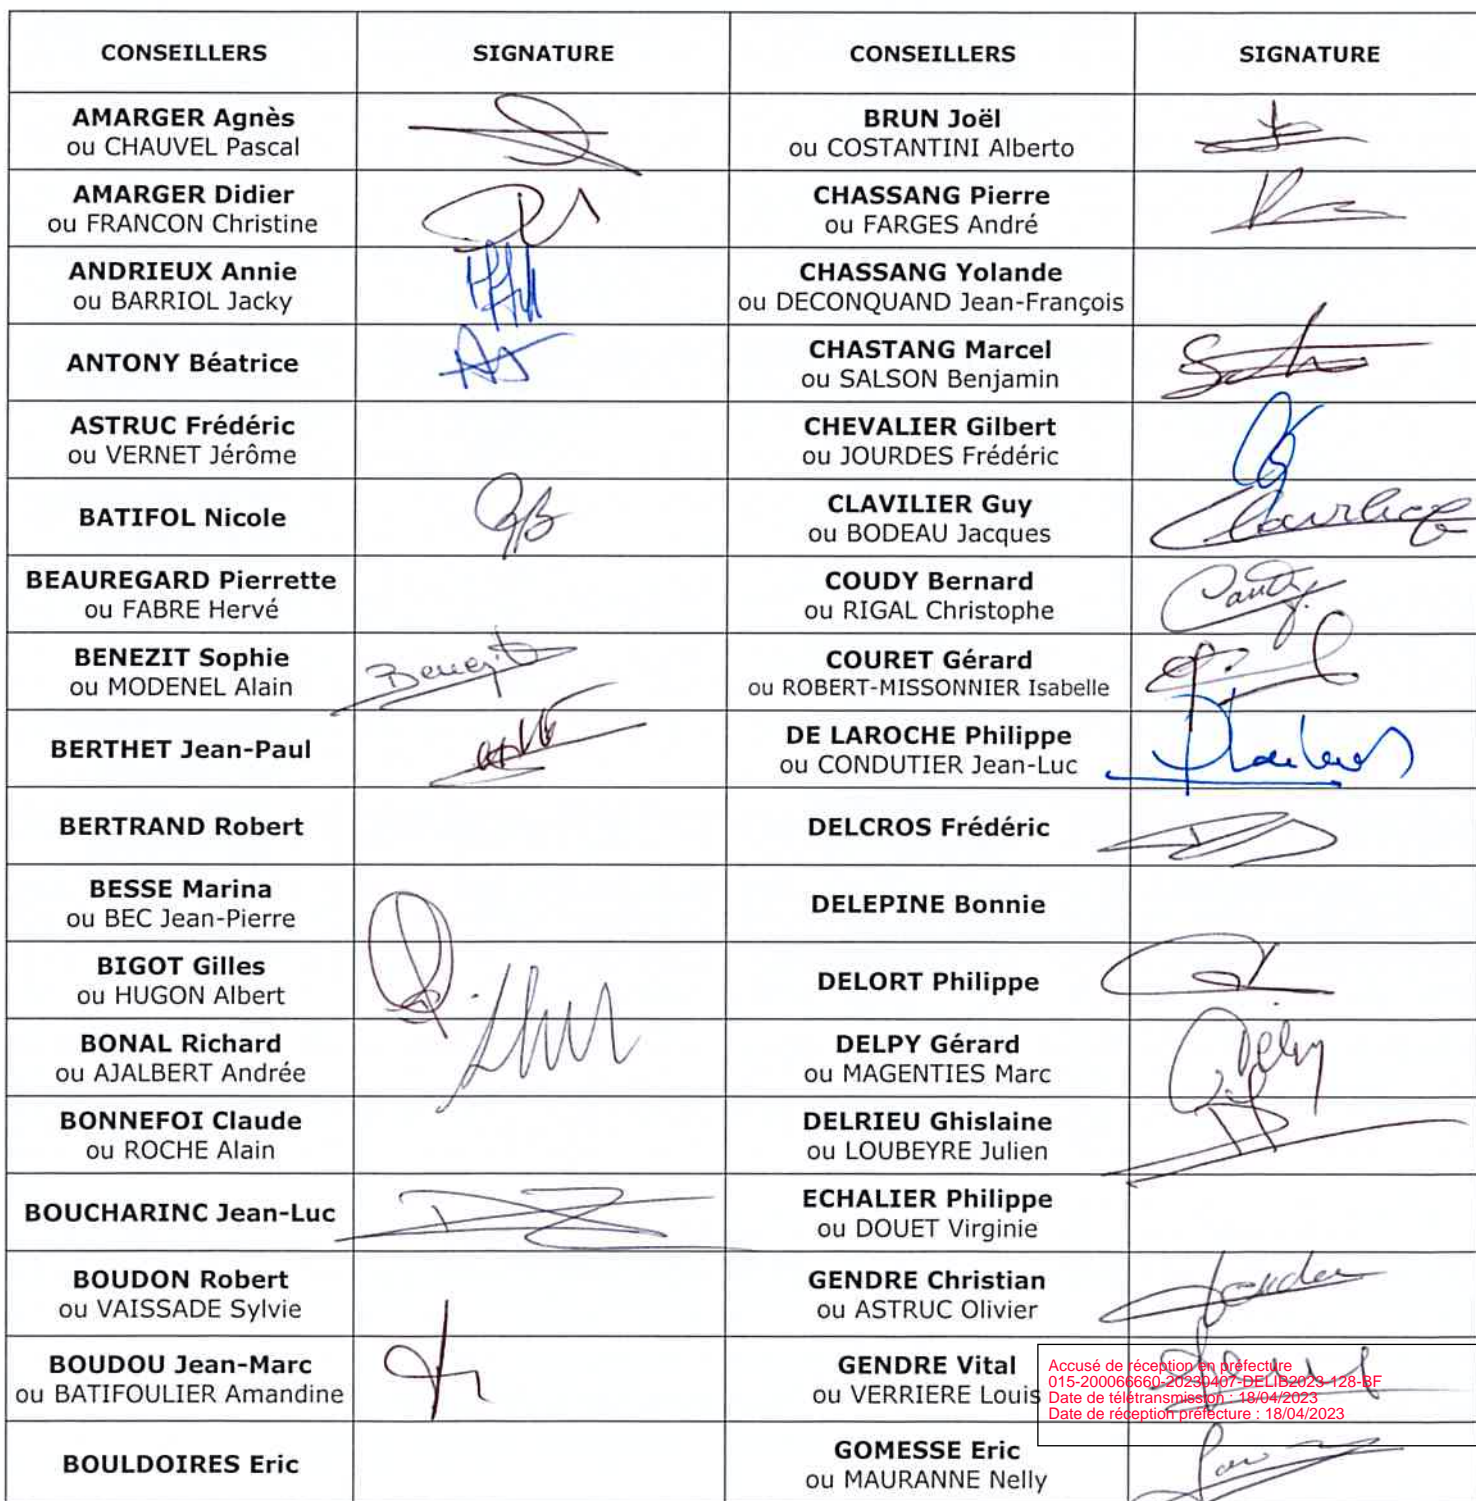 CONSEILLERS SIGNATURE CONSEILLERS SIGNATURE
AMARGER Agnès
ou CHAUVEL Pascal
BRUN Joël
ou COSTANTINI Alberto
AMARGER Didier
ou FRANCON Christine
CHASSANG Pierre
ou FARGES André
ANDRIEUX Annie
ou BARRIOL Jacky
CHASSANG Yolande
ou DECONQUAND Jean-François
ANTONY Béatrice
CHASTANG Marcel
ou SALSON Benjamin
ASTRUC Frédéric
ou VERNET Jérôme
CHEVALIER Gilbert
ou JOURDES Frédéric
BATIFOL Nicole
CLAVILIER Guy
ou BODEAU Jacques
BEAUREGARD Pierrette
ou FABRE Hervé
COUDY Bernard
ou RIGAL Christophe
BENEZIT Sophie
ou MODENEL Alain
Benezit
COURET Gérard
ou ROBERT-MISSONNIER Isabelle
BERTHET Jean-Paul
DE LAROCHE Philippe
ou CONDUTIER Jean-Luc
BERTRAND Robert
DELCROS Frédéric
BESSE Marina
ou BEC Jean-Pierre
DELEPINE Bonnie
BIGOT Gilles
ou HUGON Albert
DELORT Philippe
BONAL Richard
ou AJALBERT Andrée
DELPY Gérard
ou MAGENTIES Marc
Delpy
BONNEFOI Claude
ou ROCHE Alain
DELRIEU Ghislaine
ou LOUBEYRE Julien
BOUCHARINC Jean-Luc
ECHALIER Philippe
ou DOUET Virginie
BOUDON Robert
ou VAISSADE Sylvie
GENDRE Christian
ou ASTRUC Olivier
BOUDOU Jean-Marc
ou BATIFOULIER Amandine
GENDRE Vital
ou VERRIERE Louis
Accusé de réception en préfecture
015-200066660-20230407-DELIB2023-128-BF
Date de télétransmission : 18/04/2023
Date de réception préfecture : 18/04/2023
BOULDOIRES Eric
GOMESSE Eric
ou MAURANNE Nelly